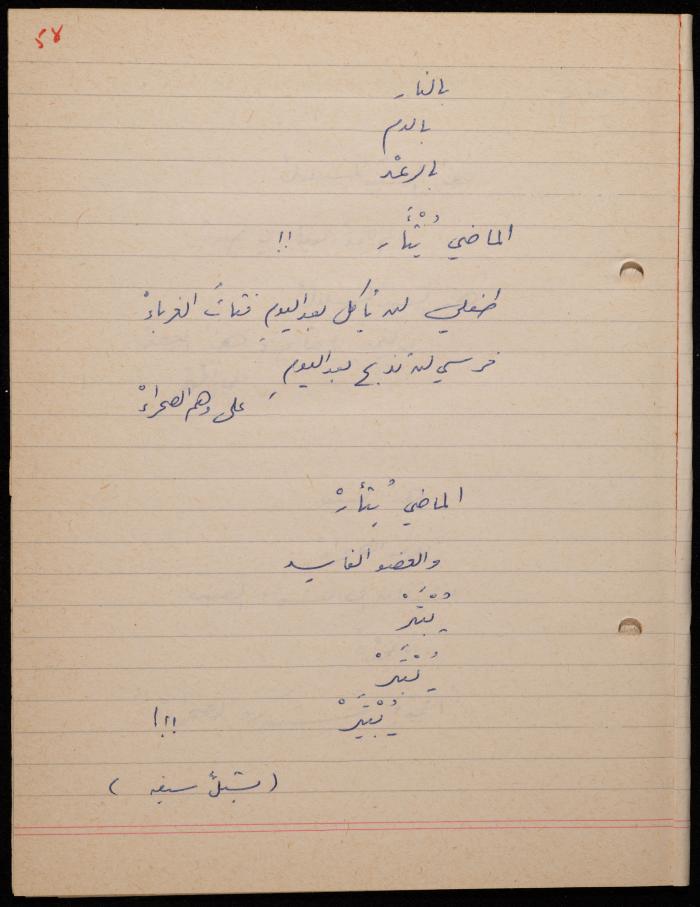 ٥٨
بالنار
بالدم
بالرعْد
الماضي يُثْأَر !!
طفلي لن يأكل بعد اليومِ فتاتَ الغرباءْ
فرسي لن تذبح بعد اليومِ
على وهم الصحراءْ
الماضي يُثأرْ
والعضو الفاسد
يُبْتَرْ
يُبْتَرْ
يُبْتَرْ !!!
( سيفه )